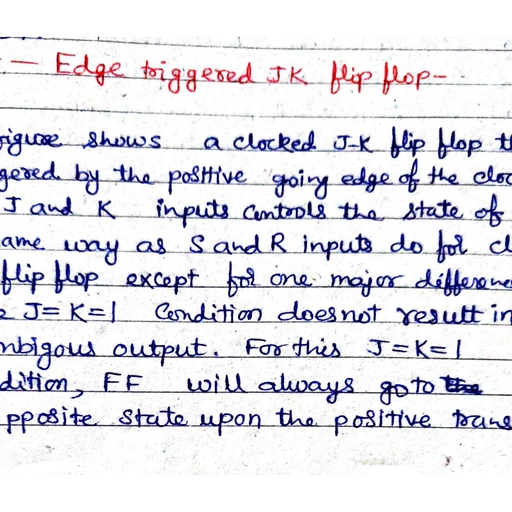 — Edge triggered JK flip flop-
igure shows a clocked J-K flip flop th
gered by the positive going edge of the cloc
J and K inputs Controls the state of
ame way as S and R inputs do for cl
flip flop except for one major differenc
J=K=1 Condition does not result in
nbigous output. For this J=K=1
dition, FF will always go to the
pposite state upon the positive trans